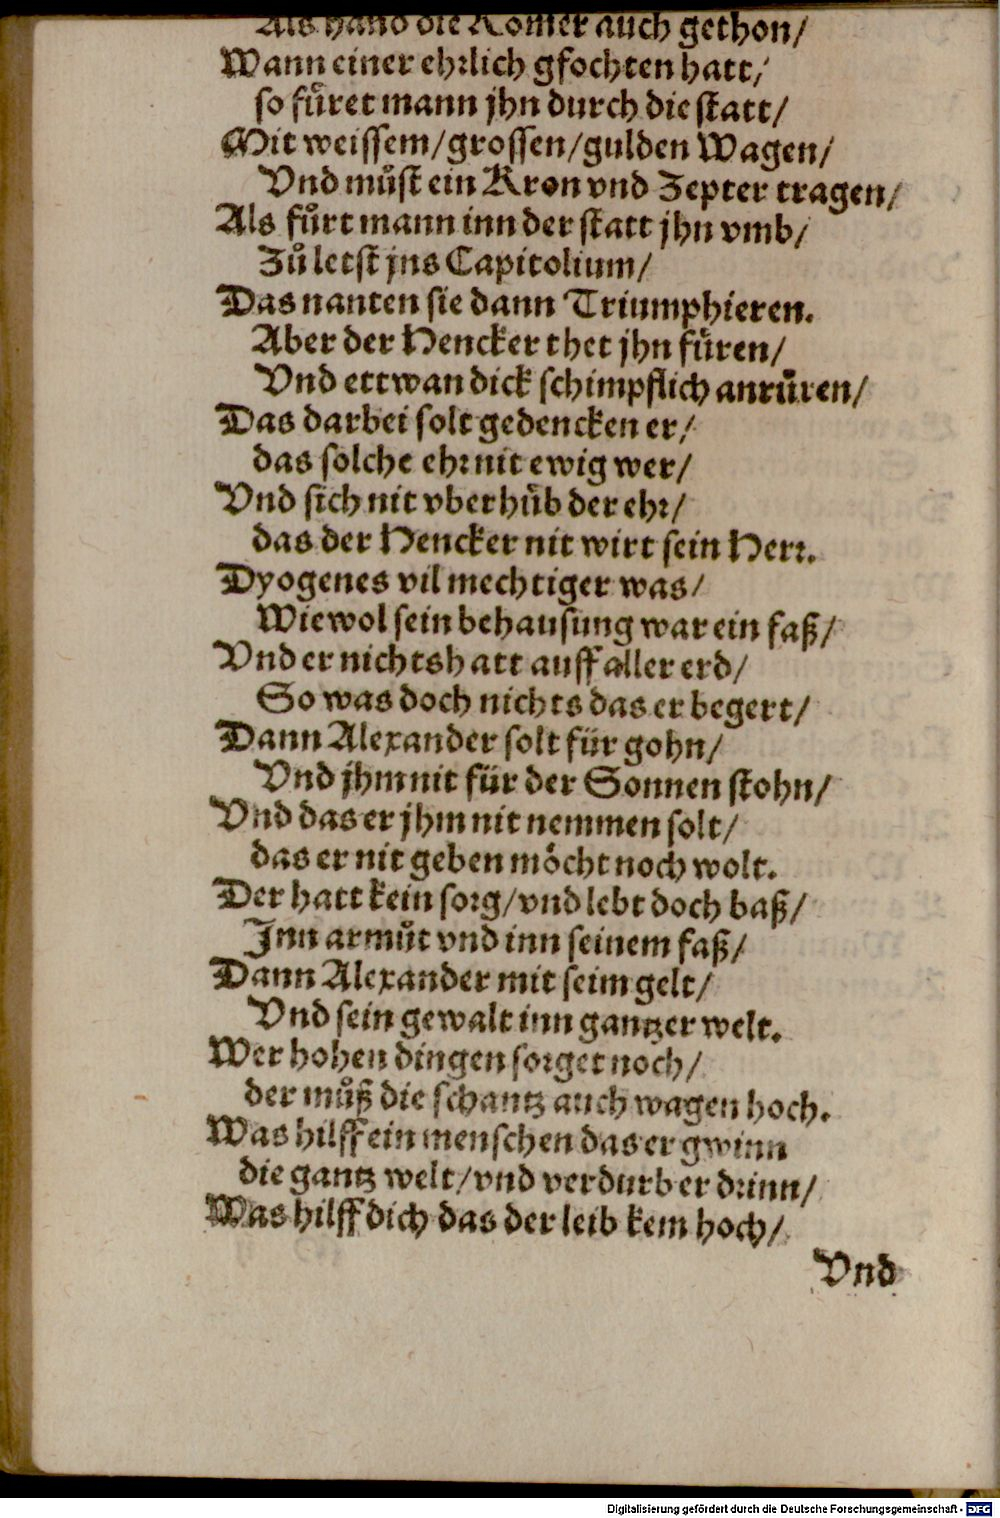 Als hand die Römer auch gethon/
Wann einer ehrlich gfochten hatt/
so fuͤret mann jhn durch die statt/
Mit weissem/grossen/gulden Wagen/
Vnd muͦst ein Kron vnd Zepter tragen/
Als fuͦrt mann inn der statt jhn vmb/
Zuͦ letst jns Capitolium/
Das nanten sie dann Triumphieren.
Aber der Hencker thet jhn fuͤren/
Vnd ettwan dick schimpflich anruͤren/
Das darbei solt gedencken er/
das solche ehr nit ewig wer/
Vnd sich nit vberhuͤb der ehr/
das der Hencker nit wirt sein Herr.
Dyogenes vil mechtiger was/
Wiewol sein behausung war ein faß/
Vnd er nichts hatt auff aller erd/
So was doch nichts das er begert/
Dann Alexander solt für gohn/
Vnd jhm nit für der Sonnen stohn/
Vnd das er jhm nit nemmen solt/
das er nit geben möcht noch wolt.
Der hatt kein sorg/vnd lebt doch baß/
Inn armuͦt vnd inn seinem faß/
Dann Alexander mit seim gelt/
Vnd sein gewalt inn gantzer welt.
Wer hohen dingen sorget noch/
der muͦß die schantz auch wagen hoch.
Was hilff ein menschen das er gwinn
die gantz welt/vnd verdurb er drinn/
Was hilff dich das der leib kem hoch/
Vnd
Digitalisierung gefördert durch die Deutsche Forschungsgemeinschaft - DFG